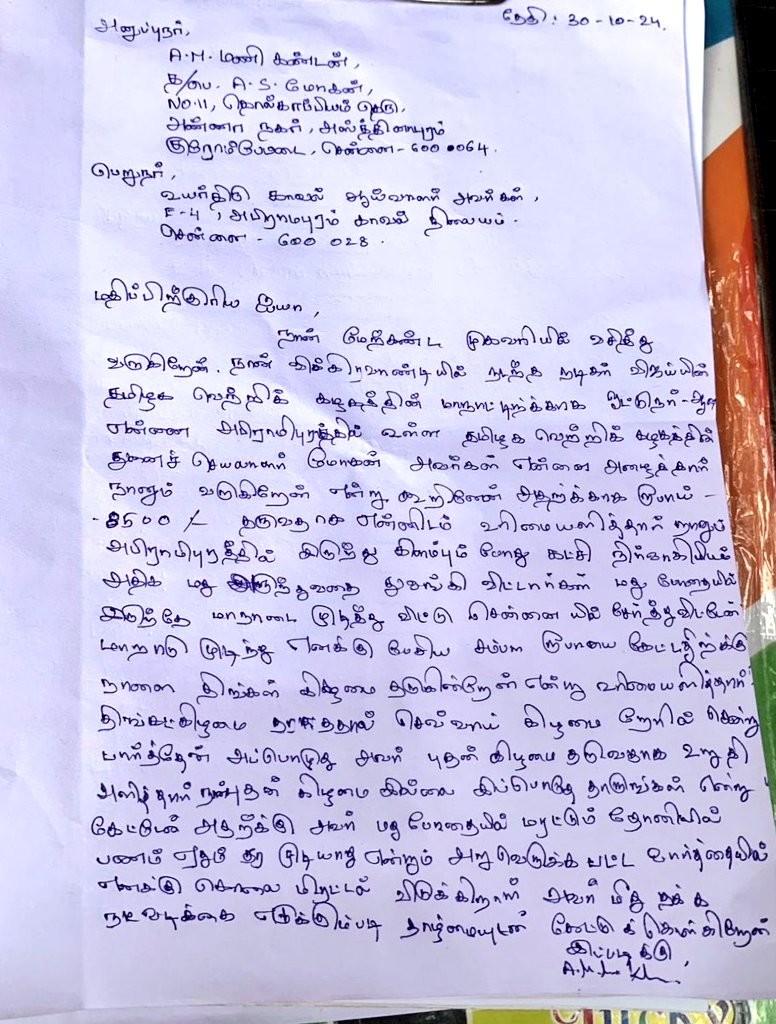 தேதி: 30-10-24.
அனுப்புநர்,
A.M. மணி கண்டன்,
த/பெ. A.S. மோகன்,
No.11, தொல்காப்பியம் தெரு,
அண்ணா நகர், அஸ்த்தினாபுரம்
குரோம்பேட்டை, சென்னை - 600 0064.
பெறுநர்,
உயர்திரு காவல் ஆய்வாளர் அவர்கள்,
E-4, அபிராமபுரம் காவல் நிலையம்.
சென்னை - 600 028.
மதிப்பிற்குரிய ஐயா,
நான் மேற்கண்ட முகவரியில் வசித்து
வருகிறேன். நான் விக்கிரவாண்டியில் நடந்த நடிகர் விஜய்யின்
தமிழக வெற்றிக் கழகத்தின் மாநாட்டிற்க்காக ஓட்டுநர்-ஆன
என்னை அபிராமிபுரத்தில் உள்ள தமிழக வெற்றிக் கழகத்தின்
துணைச் செயலாளர் மோகன் அவர்கள் என்னை அழைத்தார்
நானும் வருகிறேன் என்று கூறினேன் அதற்க்காக ரூபாய் -
-8500/- தருவதாக என்னிடம் உரிமையளித்தார் நானும்
அபிராமிபுரத்தில் இருந்து கிளம்பும் போது கட்சி
அதிக மது அருந்துவதை துவங்கி விட்டார்கள் மது போதையில்
இருந்தே மாநாடை முடித்து விட்டு சென்னை யில் சேர்த்துவிட்டேன்
மாநாடு முடிந்து எனக்கு பேசிய சம்பள ரூபாயை கேட்டதிற்க்கு
நாளை திங்கள் கிழமை தருகின்றேன் என்று உரிமையளித்தார்
திங்கட்கிழமை தராததால் செவ்வாய் கிழமை நேரில் சென்று
பார்த்தேன் அப்பொழுது அவர் புதன் கிழமை தருவதாக உறுதி
அளித்தார் நான் புதன் கிழமை இல்லை இப்பொழுதே தாருங்கள் என்று
கேட்டேன் அதற்க்கு அவர் மது போதையில் மரட்டும் தோனியில்
பணம் ஏதும் தர முடியாது என்றும் அறுவெருக்க பட்ட வார்த்தையில்
எனக்கு கொலை மிரட்டல் விடுக்கிறார் அவர் மீது தக்க
நடவடிக்கை எடுக்கும்படி தாழ்மையுடன் கேட்டு க் கொள்கிறேன்
இப்படிக்கு,